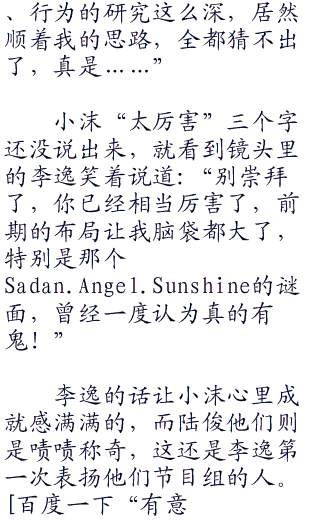 、行为的研究这么深，居然
顺着我的思路，全都猜不出
了，真是……”
小沫“太厉害”三个字
还没说出来，就看到镜头里
的李逸笑着说道：“别崇拜
了，你已经相当厉害了，前
期的布局让我脑袋都大了，
特别是那个
Sadan.Angel.Sunshine的谜
面，曾经一度认为真的有
鬼！”
李逸的话让小沫心里成
就感满满的，而陆俊他们则
是啧啧称奇，这还是李逸第
一次表扬他们节目组的人。
[百度一下“有意